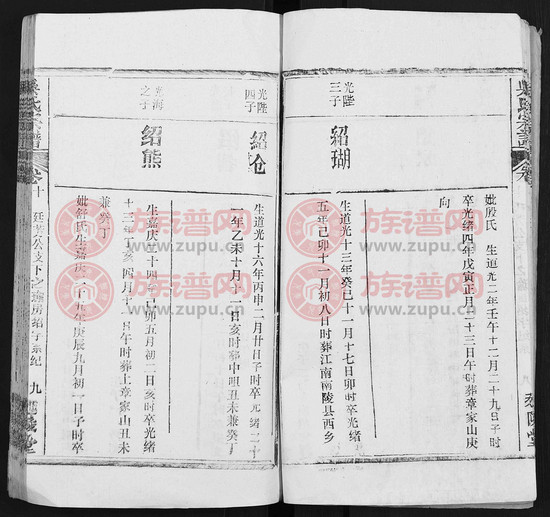 妣殷氏 生道光二年壬午十二月二十九日子時
卒光緒四年戊寅正月二十三日午時葬章家山庚
向
光陛三子
紹瑚
生道光十三年癸巳十一月十七日卯時卒光緒
五年己卯十一月初八日時葬江南南陵县西乡
光陛四子
紹伧
生道光十六年丙申二月廿日子时卒光緒二十
一年乙未十月十一日亥时葬中咀丑未兼癸丁
光海之子
紹熊
生嘉庆二十四年己卯五月初二日亥时卒光緒
十三年丁亥四月十一日午时葬上章家山丑未
兼癸丁
妣舒氏生嘉庆二十五年庚辰九月初一日子时卒
吳氏宗譜
卷十
九
族谱网
www.zupu.cn
族谱网
www.zupu.cn
族谱网
www.zupu.cn
族谱网
www.zupu.cn